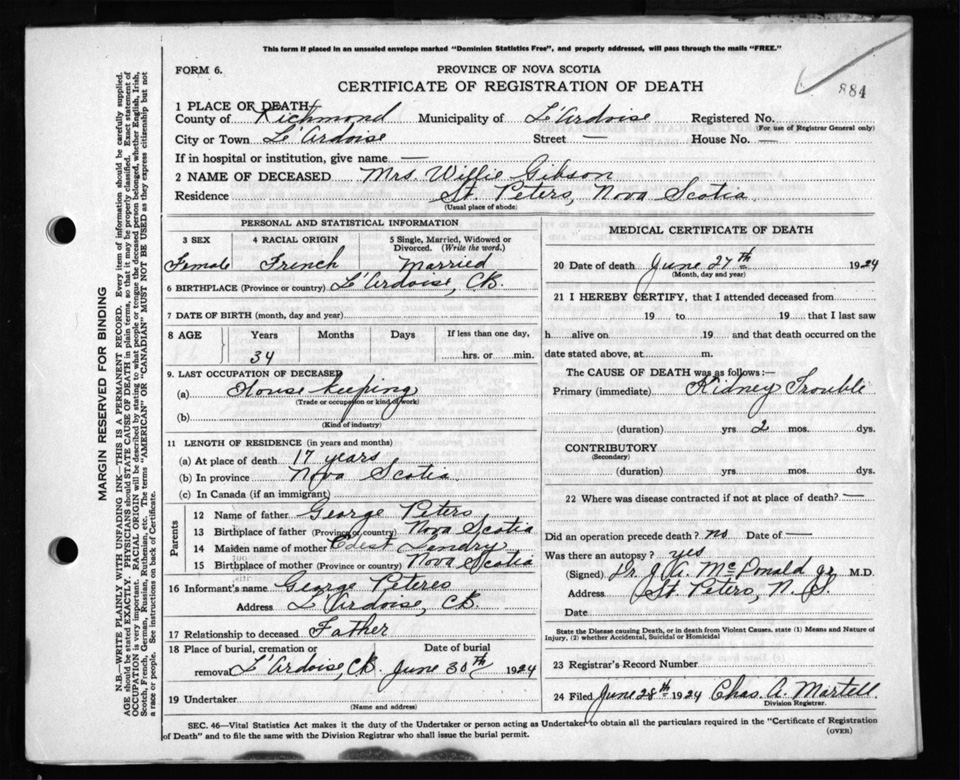 This form if placed in an unsealed envelope marked "Dominion Statistics Free", and properly addressed, will pass through the mails "FREE."
FORM 6.
PROVINCE OF NOVA SCOTIA
884
CERTIFICATE OF REGISTRATION OF DEATH
1 PLACE OF DEATH
County of Richmond Municipality of L'Ardoise Registered No.
(For use of Registrar General only)
City or Town L'Ardoise Street — House No. —
If in hospital or institution, give name —
2 NAME OF DECEASED Mrs. Willie Gibson
Residence St. Peters, Nova Scotia
(Usual place of abode)
PERSONAL AND STATISTICAL INFORMATION
3 SEX 4 RACIAL ORIGIN 5 Single, Married, Widowed or Divorced. (Write the word.)
Female French Married
6 BIRTHPLACE (Province or country) L'Ardoise, C.B.
7 DATE OF BIRTH (month, day and year)
8 AGE Years Months Days If less than one day,
34 hrs. or min.
9. LAST OCCUPATION OF DECEASED
(a) House Keeping
(Trade or occupation or kind of work)
(b)
(Kind of industry)
11 LENGTH OF RESIDENCE (in years and months)
(a) At place of death 17 years
(b) In province Nova Scotia
(c) In Canada (if an immigrant)
Parents
12 Name of father George Peters
13 Birthplace of father (Province or country) Nova Scotia
14 Maiden name of mother Landry
15 Birthplace of mother (Province or country) Nova Scotia
16 Informant's name George Peteres
Address L'Ardoise, C.B.
17 Relationship to deceased Father
18 Place of burial, cremation or Date of burial
removal L'Ardoise, C.B. June 30th 1924
19 Undertaker
(Name and address)
MEDICAL CERTIFICATE OF DEATH
20 Date of death June 27th 1924
(Month, day and year)
21 I HEREBY CERTIFY, that I attended deceased from
19 to 19 that I last saw
h alive on 19 and that death occurred on the
date stated above, at m.
The CAUSE OF DEATH was as follows:—
Primary (immediate) Kidney Trouble
(duration) yrs. 2 mos. dys.
CONTRIBUTORY
(Secondary)
(duration) yrs. mos. dys.
22 Where was disease contracted if not at place of death? —
Did an operation precede death? no Date of —
Was there an autopsy? yes
(Signed) Dr. J. A. McDonald jr M.D.
Address St. Peters, N. S.
Date
State the Disease causing Death, or in death from Violent Causes, state (1) Means and Nature of
Injury, (2) whether Accidental, Suicidal or Homicidal
23 Registrar's Record Number
24 Filed June 28th 1924 Chas. A. Martell
Division Registrar.
SEC. 46—Vital Statistics Act makes it the duty of the Undertaker or person acting as Undertaker to obtain all the particulars required in the "Certificate of Registration
of Death" and to file the same with the Division Registrar who shall issue the burial permit.
(OVER)
MARGIN RESERVED FOR BINDING
N.B.—WRITE PLAINLY WITH UNFADING INK—THIS IS A PERMANENT RECORD. Every item of information should be carefully supplied.
AGE should be stated EXACTLY. PHYSICIANS should STATE CAUSE OF DEATH in plain terms, so that it may be properly classified. Exact statement of
OCCUPATION is very important. RACIAL ORIGIN will be described by stating to what people or tongue the deceased person belonged, whether English, Irish,
Scotch, French, German, Russian, Ruthenian, etc. The terms "AMERICAN" OR "CANADIAN" MUST NOT BE USED as they express citizenship but not
a race or people. See instructions on back of Certificate.